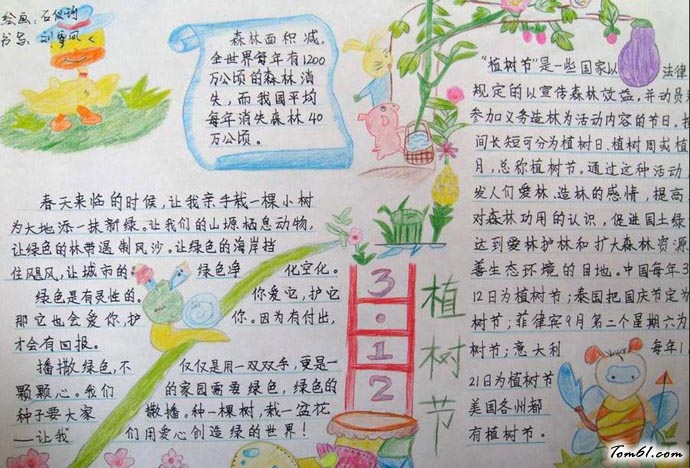 绘画：石
书写：刘
森林面积减，
全世界每年有1200
万公顷的森林消
失，而我国平均
每年消失森林40
万公顷。
春天来临的时候，让我亲手栽一棵小树
为大地添一抹新绿。让我们的山塬栖息动物，
让绿色的林带遏制风沙。让绿色的海岸挡
住飓风，让城市的 绿色净 化空化。
绿色是有灵性的。 你爱它，护它
那它也会爱你，护 你。因为有付出，
才会有回报。
播撒绿色，不 仅仅是用一双双手，更是一
颗颗心。我们 的家园需要绿色，绿色的
种子要大家 撒播。种一棵树，栽一盆花
——让我 们用爱心创造绿的世界！
3·12
植树节
“植树节”是一些国家以 法律
规定的以宣传森林效益，并动员
参加义务造林为活动内容的节日。按
间长短可分为植树日、植树周或植
月，总称植树节。通过这种活动，
发人们爱林、造林的感情，提高
对森林功用的认识，促进国土绿
达到爱林护林和扩大森林资源
善生态环境的目地。中国每年3
12日为植树节；泰国把国庆节定为
树节；菲律宾9月第二个星期六为
树节；意大利 每年1
21日为植树节
美国各州都
有植树节。
Tom61.com